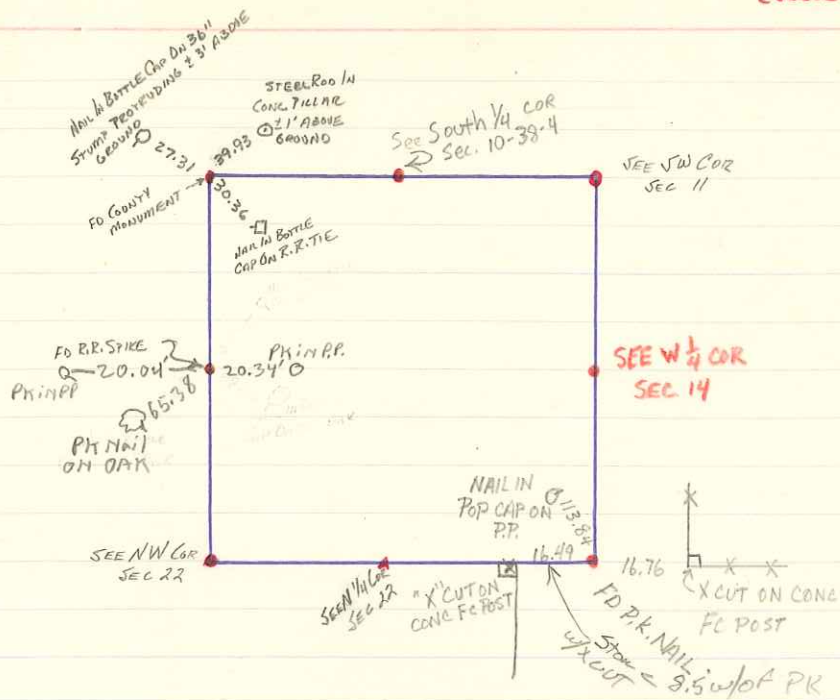 NAIL IN BOTTLE CAP ON 36"
STUMP PROTRUDING ± 3' ABOVE
GROUND
27.31
39.93
STEEL ROD IN
CONC. PILLAR
±1' ABOVE
GROUND
See South 1/4 COR
Sec. 10-38-4
SEE SW COR
SEC 11
FD COUNTY
MONUMENT
30.36
NAIL IN BOTTLE
CAP ON R.R. TIE
FD R.R. SPIKE
20.04'
PK IN PP
20.34'
PK IN P.P.
65.38
PK Nail
ON OAK
SEE W 1/4 COR
SEC. 14
NAIL IN
POP CAP ON
P.P.
113.84
16.49
16.76
SEE NW COR
SEC 22
SEE N 1/4 COR
SEC 22
"X" CUT ON
CONC FC POST
FD P.K. NAIL
Stone
w/X CUT
2.5' w/of PK
X CUT ON CONC
FC POST